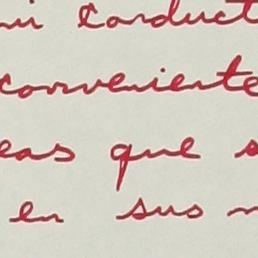 mi conduct
conveniente
eas que s
en sus m